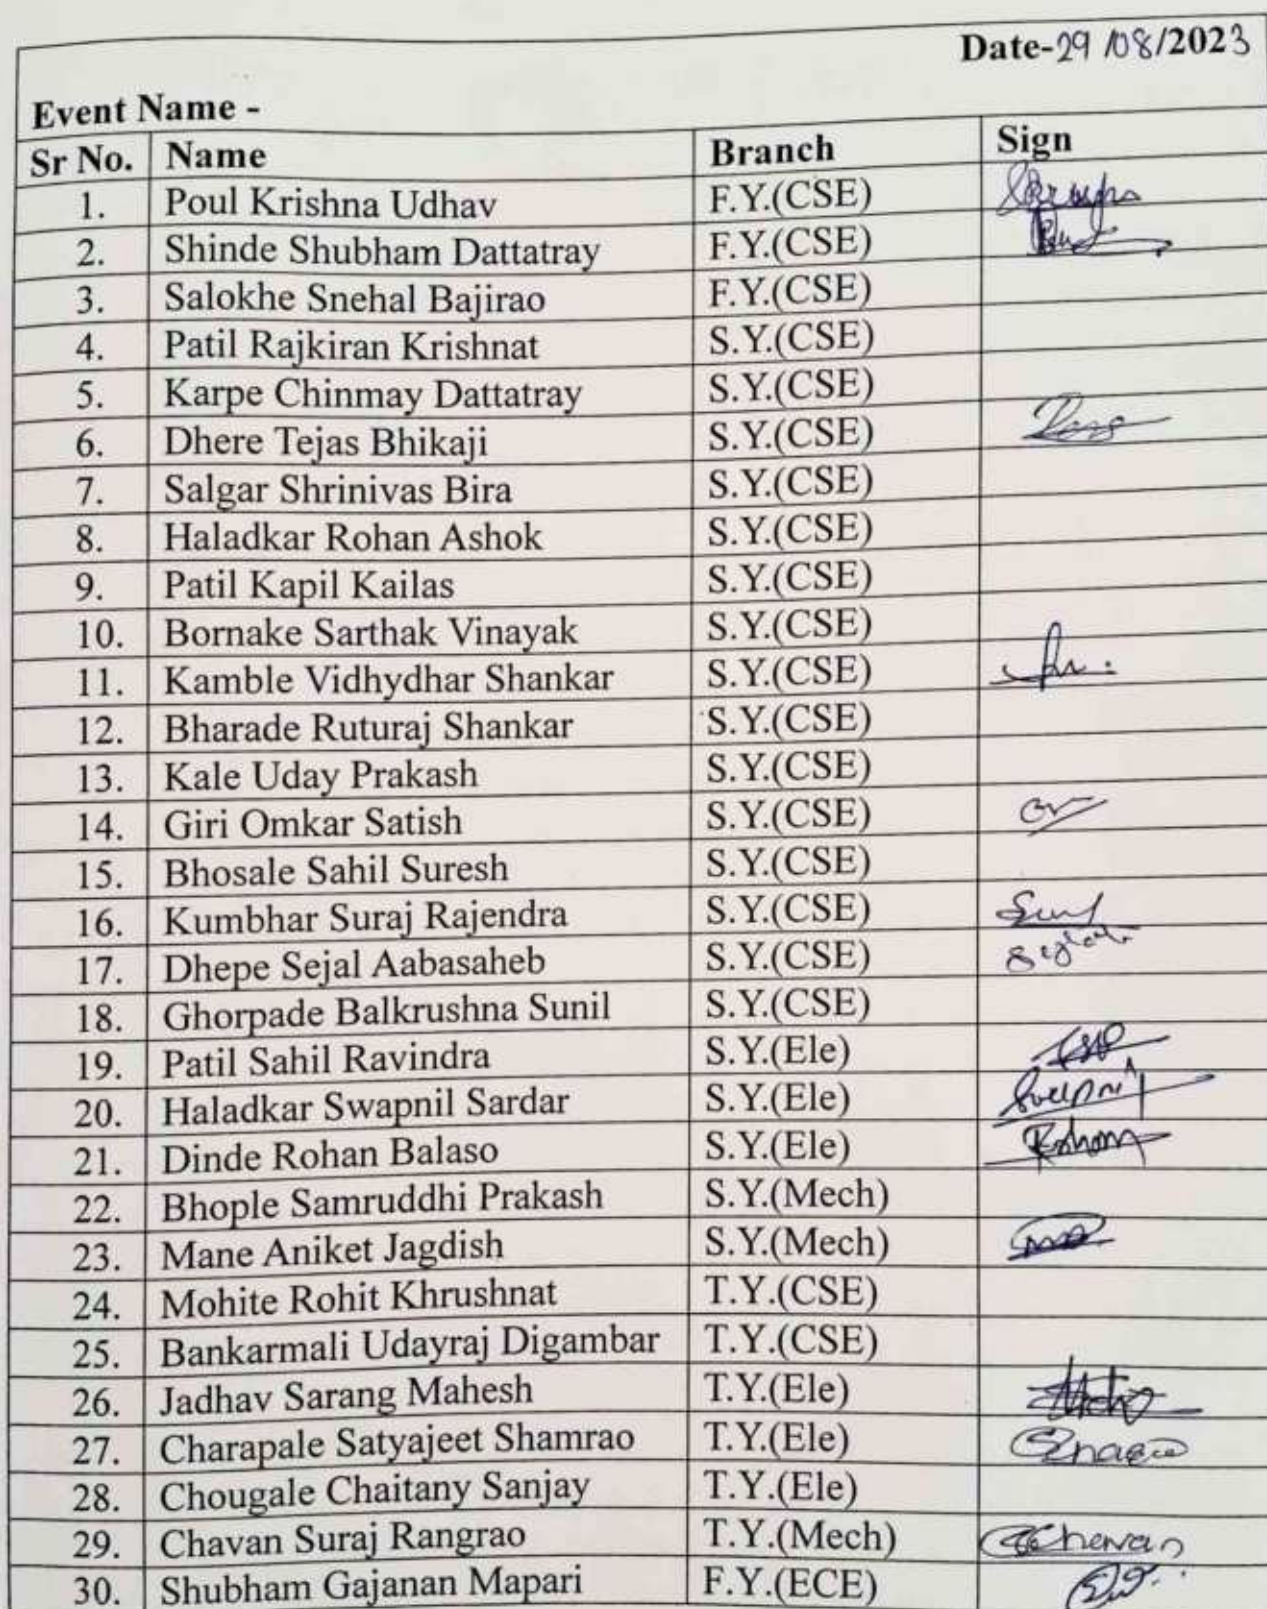 Date-29/08/2023
Event Name -
Sr No. Name Branch Sign
1. Poul Krishna Udhav F.Y.(CSE)
2. Shinde Shubham Dattatray F.Y.(CSE)
3. Salokhe Snehal Bajirao F.Y.(CSE)
4. Patil Rajkiran Krishnat S.Y.(CSE)
5. Karpe Chinmay Dattatray S.Y.(CSE)
6. Dhere Tejas Bhikaji S.Y.(CSE)
7. Salgar Shrinivas Bira S.Y.(CSE)
8. Haladkar Rohan Ashok S.Y.(CSE)
9. Patil Kapil Kailas S.Y.(CSE)
10. Bornake Sarthak Vinayak S.Y.(CSE)
11. Kamble Vidhydhar Shankar S.Y.(CSE)
12. Bharade Ruturaj Shankar S.Y.(CSE)
13. Kale Uday Prakash S.Y.(CSE)
14. Giri Omkar Satish S.Y.(CSE)
15. Bhosale Sahil Suresh S.Y.(CSE)
16. Kumbhar Suraj Rajendra S.Y.(CSE)
17. Dhepe Sejal Aabasaheb S.Y.(CSE)
18. Ghorpade Balkrushna Sunil S.Y.(CSE)
19. Patil Sahil Ravindra S.Y.(Ele)
20. Haladkar Swapnil Sardar S.Y.(Ele)
21. Dinde Rohan Balaso S.Y.(Ele)
22. Bhople Samruddhi Prakash S.Y.(Mech)
23. Mane Aniket Jagdish S.Y.(Mech)
24. Mohite Rohit Khrushnat T.Y.(CSE)
25. Bankarmali Udayraj Digambar T.Y.(CSE)
26. Jadhav Sarang Mahesh T.Y.(Ele)
27. Charapale Satyajeet Shamrao T.Y.(Ele)
28. Chougale Chaitany Sanjay T.Y.(Ele)
29. Chavan Suraj Rangrao T.Y.(Mech)
30. Shubham Gajanan Mapari F.Y.(ECE)